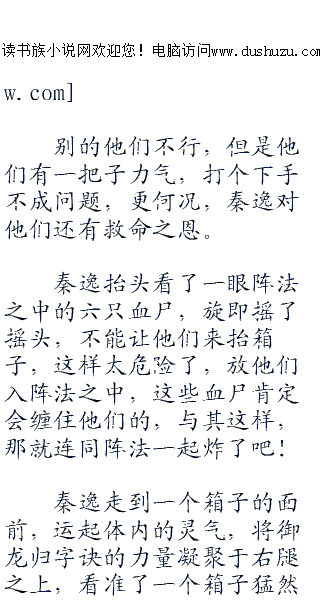 读书族小说网欢迎您！电脑访问www.dushuzu.com
w.com]
别的他们不行，但是他
们有一把子力气，打个下手
不成问题，更何况，秦逸对
他们还有救命之恩。
秦逸抬头看了一眼阵法
之中的六只血尸，旋即摇了
摇头，不能让他们来抬箱
子，这样太危险了，放他们
入阵法之中，这些血尸肯定
会缠住他们的，与其这样，
那就连同阵法一起炸了吧！
秦逸走到一个箱子的面
前，运起体内的灵气，将御
龙归字诀的力量凝聚于右腿
之上，看准了一个箱子猛然